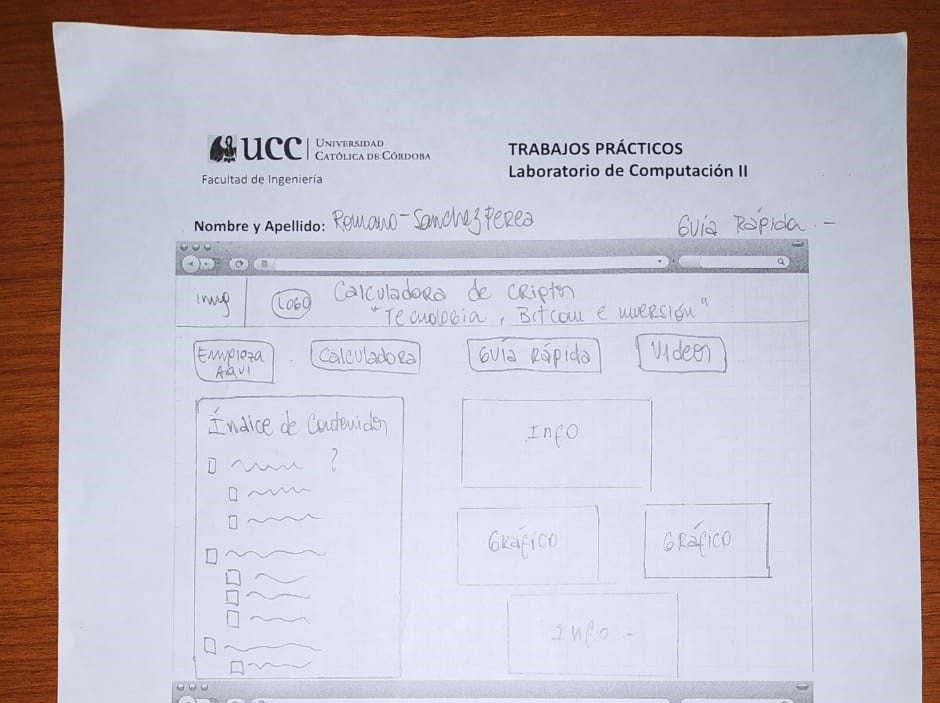 UCC UNIVERSIDAD
CATÓLICA DE CÓRDOBA
Facultad de Ingeniería
TRABAJOS PRÁCTICOS
Laboratorio de Computación II
Nombre y Apellido: Romano-Sanchez Perea
Guía Rápida.-
img
LOGO
Calculadora de criptos
"Tecnologia, Bitcoin e inversión"
Empieza
Aquí
Calculadora
Guía Rápida
Videos
Índice de Contenidos
?
Info
Gráfico
Gráfico
Info-